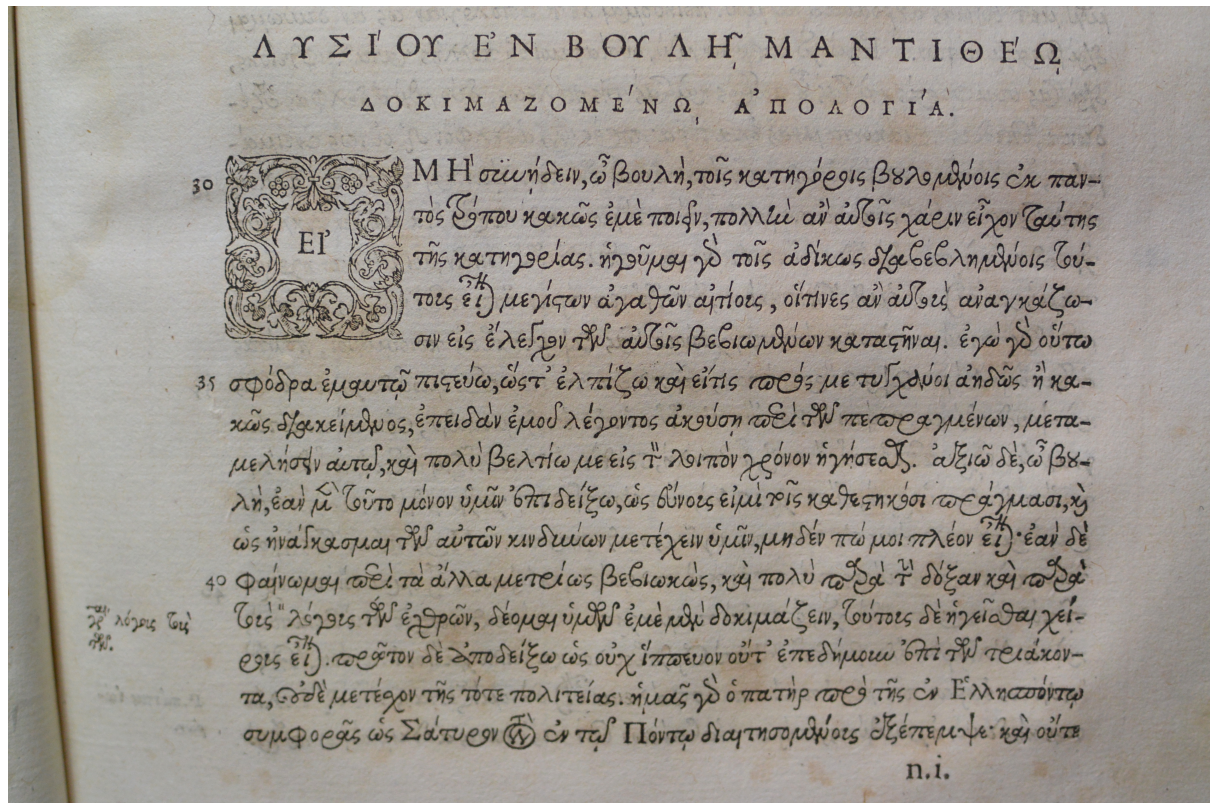 ΛΥΣΙ´ΟΥ Ε᾿Ν ΒΟΥΛΗ῀ͅ ΜΑΝΤΙΘΕ´ῼ
ΔΟΚΙΜΑΖΟΜΕ´Νῼ Α᾿ΠΟΛΟΓΙ´Α.
30 ΕΙ᾿ ΜΗ` συνῄδειν, ὦ βουλὴ, τοῖς κατηγόροις βουλομένοις ἐκ παν-
τὸς τρόπου κακῶς ἐμὲ ποιεῖν, πολλὴν ἂν αὐτοῖς χάριν εἶχον ταύτης
τῆς κατηγορίας. ἡγοῦμαι γὰρ τοῖς ἀδίκως διαβεβλημένοις τού-
τους εἶναι μεγίστων ἀγαθῶν αἰτίους, οἵτινες ἂν αὐτοὺς ἀναγκάζω-
σιν εἰς ἔλεγχον τῶν αὐτοῖς βεβιωμένων καταστῆναι. ἐγὼ γὰρ οὕτω
35 σφόδρα ἐμαυτῷ πιστεύω, ὥστ᾿ ἐλπίζω καὶ εἴτις πρός με τυγχάνοι ἀηδῶς ἢ κα-
κῶς διακείμενος, ἐπειδὰν ἐμοῦ λέγοντος ἀκούσῃ περὶ τῶν πεπραγμένων, μετα-
μελήσειν αὐτῷ, καὶ πολὺ βελτίω με εἰς τὸν λοιπὸν χρόνον ἡγήσεσθαι. ἀξιῶ δὲ, ὦ βου-
λὴ, ἐὰν μὲν τοῦτο μόνον ὑμῖν ἐπιδείξω, ὡς εὔνους εἰμὶ τοῖς καθεστηκόσι πράγμασι, καὶ
ὡς ἠνάγκασμαι τῶν αὐτῶν κινδύνων μετέχειν ὑμῖν, μηδέν πώ μοι πλέον εἶναι· ἐὰν δὲ
40 φαίνωμαι περὶ τὰ ἄλλα μετρίως βεβιωκὼς, καὶ πολὺ παρὰ τὴν δόξαν καὶ παρὰ
τοὺς λόγους τῶν ἐχθρῶν, δέομαι ὑμῶν ἐμὲ μὲν δοκιμάζειν, τούτους δὲ ἡγεῖσθαι χεί-
ρους εἶναι. πρῶτον δὲ ἀποδείξω ὡς οὐχ ἵππευον οὔτ᾿ ἐπεδήμουν ἐπὶ τῶν τριάκον-
τα, οὐδὲ μετέχον τῆς τότε πολιτείας. ἡμᾶς γὰρ ὁ πατὴρ πρὸ τῆς ἐν Ἑλλησπόντῳ
συμφορᾶς ὡς Σάτυρον τὸν ἐν τῷ Πόντῳ διαιτησομένους ἐξέπεμψε· καὶ οὔτε
λόγοις τοῖς
τῶν.
n.i.